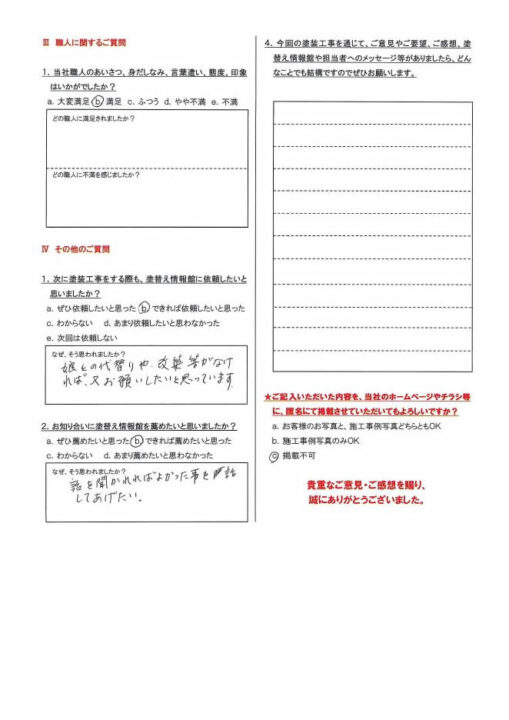 Ⅲ 職人に関するご質問
1. 当社職人のあいさつ、身だしなみ、言葉遣い、態度、印象
はいかがでしたか？
a. 大変満足 b. 満足 c. ふつう d. やや不満 e. 不満
どの職人に満足されましたか？
どの職人に不満を感じましたか？
Ⅳ その他のご質問
1. 次に塗装工事をする際も、塗替え情報館に依頼したいと
思いましたか？
a. ぜひ依頼したいと思った b. できれば依頼したいと思った
c. わからない d. あまり依頼したいと思わなかった
e. 次回は依頼しない
なぜ、そう思われましたか？
娘との代替りや、改築等がなけ
れば、又お願いしたいと思っています
2. お知り合いに塗替え情報館を薦めたいと思いましたか？
a. ぜひ薦めたいと思った b. できれば薦めたいと思った
c. わからない d. あまり薦めたいと思わなかった
なぜ、そう思われましたか？
話を聞かれればよかった事を話
してあげたい.
4. 今回の塗装工事を通じて、ご意見やご要望、ご感想、塗
替え情報館や担当者へのメッセージ等がありましたら、どん
なことでも結構ですのでぜひお願いします。
★ご記入いただいた内容を、当社のホームページやチラシ等
に、匿名にて掲載させていただいてもよろしいですか？
a. お客様のお写真と、施工事例写真どちらともOK
b. 施工事例写真のみOK
c. 掲載不可
貴重なご意見・ご感想を賜り、
誠にありがとうございました。